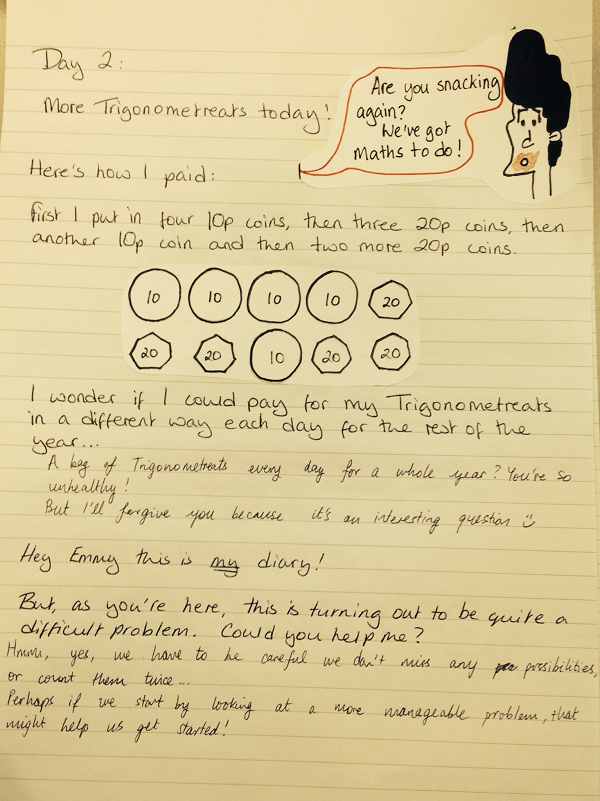 Day 2:
Are you snacking
again?
We've got
maths to do!
More Trigonometreats today!
Here's how I paid:
First I put in four 10p coins, then three 20p coins, then
another 10p coin and then two more 20p coins.
10 10 10 10 20
20 20 10 20 20
I wonder if I could pay for my Trigonometreats
in a different way each day for the rest of the
year...
A bag of Trigonometreats every day for a whole year? You're so
unhealthy!
But I'll forgive you because it's an interesting question
Hey Emmy this is my diary!
But, as you're here, this is turning out to be quite a
difficult problem. Could you help me?
Hmmm, yes, we have to be careful we don't miss any possibilities,
or count them twice...
Perhaps if we start by looking at a more manageable problem, that
might help us get started!